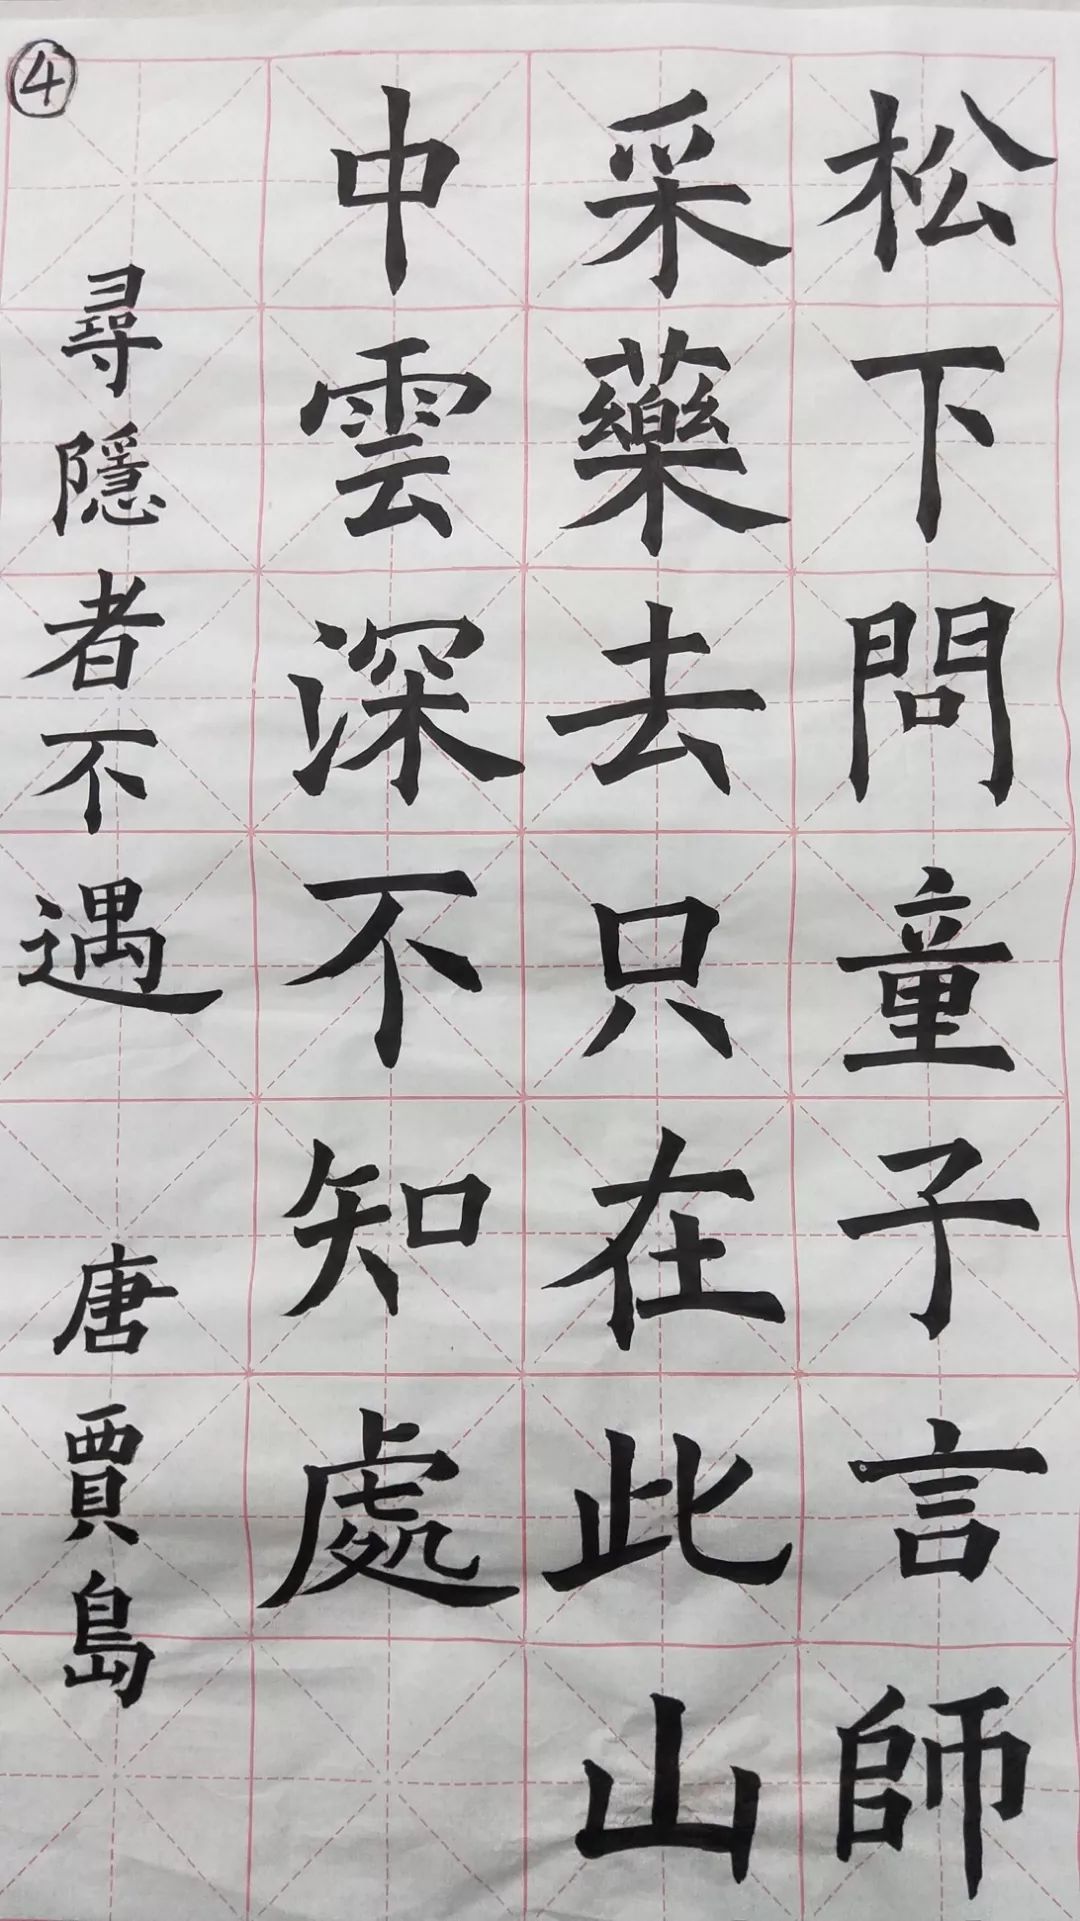 ④
松下問童子言師
采藥去只在此山
中雲深不知處
尋隱者不遇 唐賈島